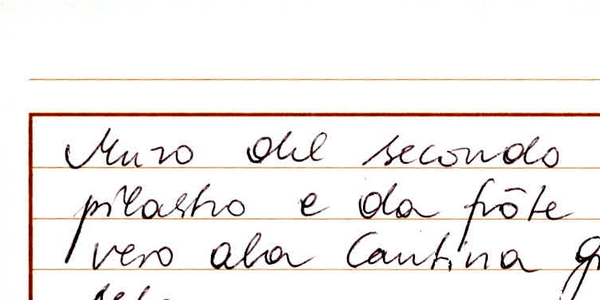 Muro del secondo
pilastro e da frōte
vero ala Cantina